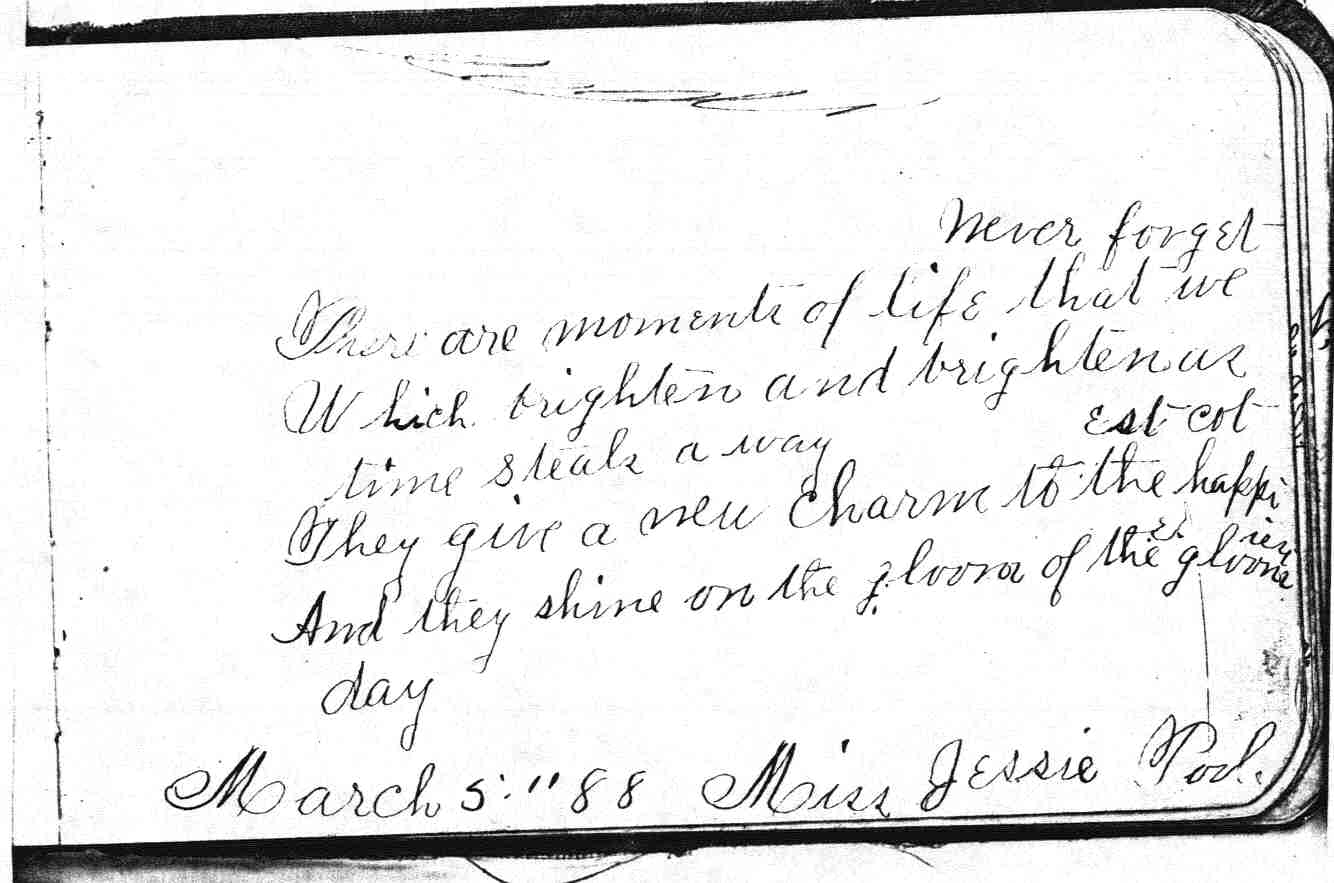 Never forget
There are moments of life that we
Which brighten and brighten as
time steals a way
est cot
They give a new charm to the happi
And they shine on the gloom of the gloom
iest
day
March 5. "88 Miss Jessie